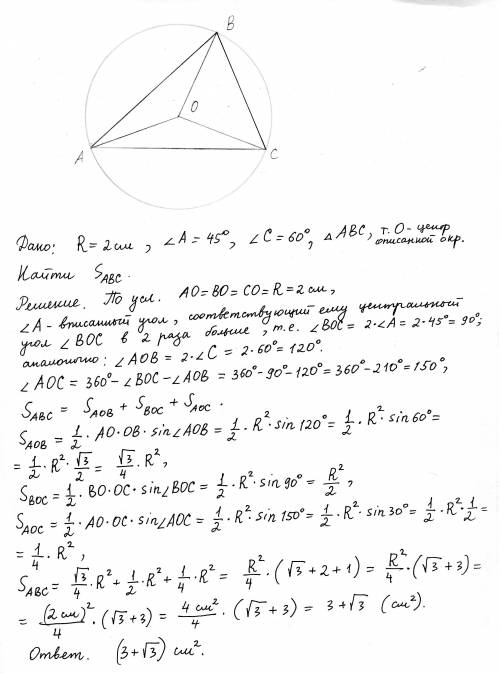 B
O
A
C
Дано: R = 2 см, ∠A = 45°, ∠C = 60°, △ABC, т. O - центр описанной окр.
Найти S_ABC.
Решение. По усл. AO = BO = CO = R = 2 см,
∠A - вписанный угол, соответствующий ему центральный
угол ∠BOC в 2 раза больше, т.е. ∠BOC = 2·∠A = 2·45° = 90°;
аналогично: ∠AOB = 2·∠C = 2·60° = 120°.
∠AOC = 360° - ∠BOC - ∠AOB = 360° - 90° - 120° = 360° - 210° = 150°;
S_ABC = S_AOB + S_BOC + S_AOC.
S_AOB = 1/2·AO·OB·sin∠AOB = 1/2·R²·sin 120° = 1/2·R²·sin 60° =
= 1/2·R²·√3/2 = √3/4·R²,
S_BOC = 1/2·BO·OC·sin∠BOC = 1/2·R²·sin 90° = R²/2,
S_AOC = 1/2·AO·OC·sin∠AOC = 1/2·R²·sin 150° = 1/2·R²·sin 30° = 1/2·R²·1/2 =
= 1/4·R²,
S_ABC = √3/4·R² + 1/2·R² + 1/4·R² = R²/4·(√3 + 2 + 1) = R²/4·(√3 + 3) =
= (2 см)²/4·(√3 + 3) = 4 см²/4·(√3 + 3) = 3 + √3 (см²).
Ответ. (3 + √3) см².